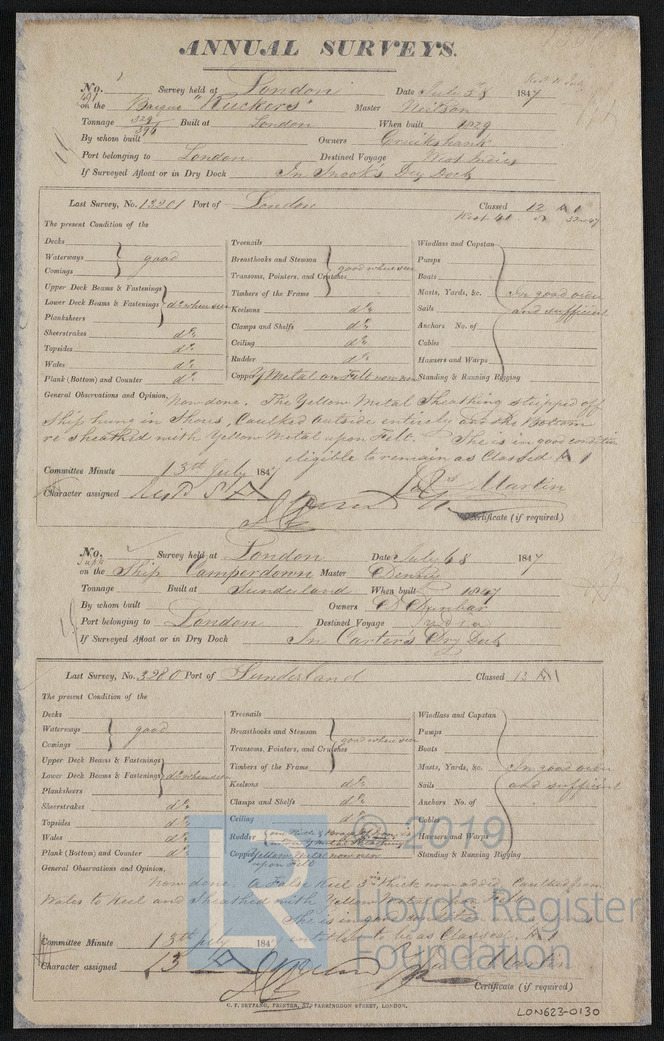 ANNUAL SURVEYS.
No. Survey held at London Date July 3 & 8 1847
on the Barque "Ruckers" Master Neilson
Tonnage 329 / 396 Built at London When built 1829
By whom built Owners Cruikshank
Port belonging to London Destined Voyage West Indies
If Surveyed Afloat or in Dry Dock In Snook's Dry Dock
Last Survey, No. 13301 Port of London Classed 12 A 1
The present Condition of the
Decks
Waterways good
Comings
Upper Deck Beams & Fastenings
Lower Deck Beams & Fastenings do when seen
Planksheers
Sheerstrakes do
Topsides do
Wales do
Plank (Bottom) and Counter do
Treenails
Breasthooks and Stemson good when seen
Transoms, Pointers, and Crutches
Timbers of the Frame
Keelsons do
Clamps and Shelfs do
Ceiling do
Rudder do
Copper Y Metal on Felt now new
Windlass and Capstan
Pumps
Boats
Masts, Yards, &c. In good order
Sails and sufficient
Anchors No. of
Cables
Hawsers and Warps
Standing & Running Rigging
General Observations and Opinion, Now done. The Yellow Metal Sheathing stripped off
Ship hung in Shores, Caulked outside entirely and the Bottom
re sheathed with Yellow Metal upon Felt. She is in good condition
eligible to remain as Classed A 1
Committee Minute 13th July 1847
Character assigned
Martin
Certificate (if required)
No. Survey held at London Date July 6 & 8 1847
on the Ship Camperdown Master Denny
Tonnage Built at Sunderland When built 1847
By whom built Owners D Dunbar
Port belonging to London Destined Voyage India
If Surveyed Afloat or in Dry Dock In Carter's Dry Dock
Last Survey, No. 3280 Port of Sunderland Classed 13 A 1
The present Condition of the
Decks
Waterways good
Comings
Upper Deck Beams & Fastenings
Lower Deck Beams & Fastenings do when seen
Planksheers
Sheerstrakes do
Topsides do
Wales do
Plank (Bottom) and Counter do
Treenails
Breasthooks and Stemson good when seen
Transoms, Pointers, and Crutches
Timbers of the Frame
Keelsons do
Clamps and Shelfs do
Ceiling do
Rudder
Copper Yellow Metal now new
upon Felt
Windlass and Capstan
Pumps
Boats
Masts, Yards, &c. In good order
Sails and sufficient
Anchors No. of
Cables
Hawsers and Warps
Standing & Running Rigging
General Observations and Opinion,
Now done. A False Keel 3 in thick now added, Caulked from
Wales to Keel and Sheathed with Yellow Metal upon Felt
She is in good condition
entitled to be as Classed A 1
Committee Minute 13th July 184
Character assigned 13 A
Martin
Certificate (if required)
C. F. SEYFANG, PRINTER, 57, FARRINGDON STREET, LONDON.
LON623-0130
LR © 2019
Lloyd's Register
Foundation